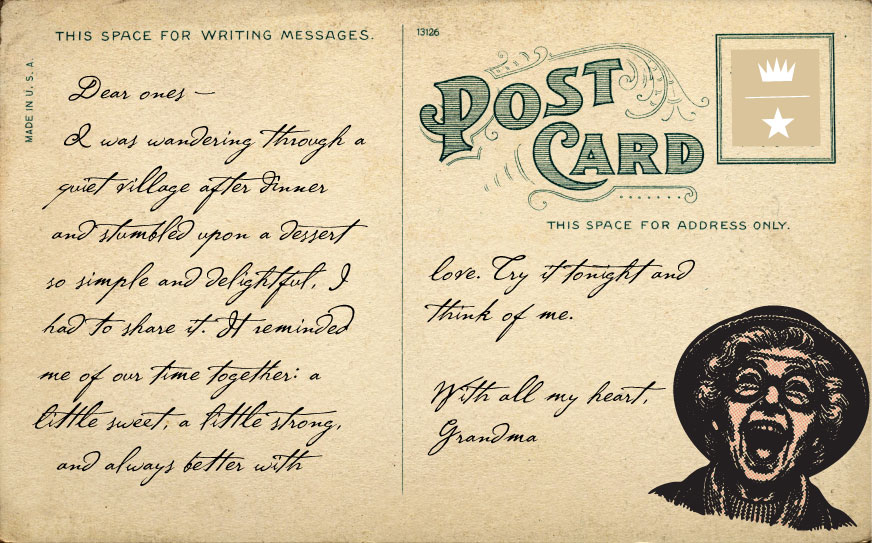 THIS SPACE FOR WRITING MESSAGES.
MADE IN U. S. A.
Dear ones —
I was wandering through a
quiet village after dinner
and stumbled upon a dessert
so simple and delightful, I
had to share it. It reminded
me of our time together: a
little sweet, a little strong,
and always better with
13126
POST
CARD
THIS SPACE FOR ADDRESS ONLY.
love. Try it tonight and
think of me.
With all my heart,
Grandma